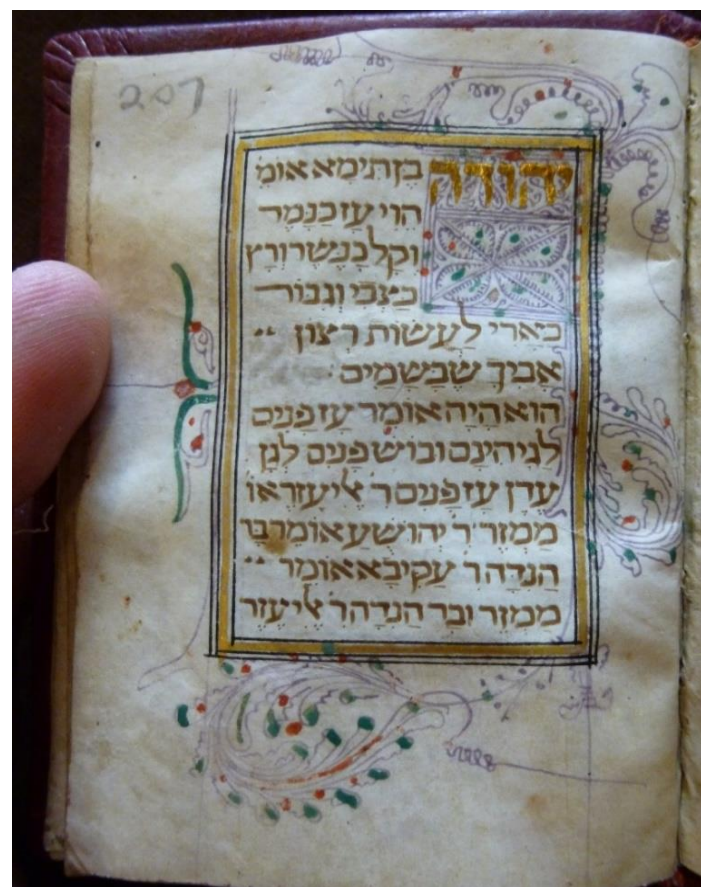 207
יהודה בן תימא אומ
הוי עז כנמר
וקל כנשר ורץ
כצבי וגבור
כארי לעשות רצון
אביך שבשמים
הוא היה אומר עז פנים
לגיהינם ובוש פנים לגן
עדן עז פנים ר אליעזר או
ממזר ר יהושע אומר בר
הנדה ר עקיבא אומר
ממזר ובר הנדה ר אליעזר